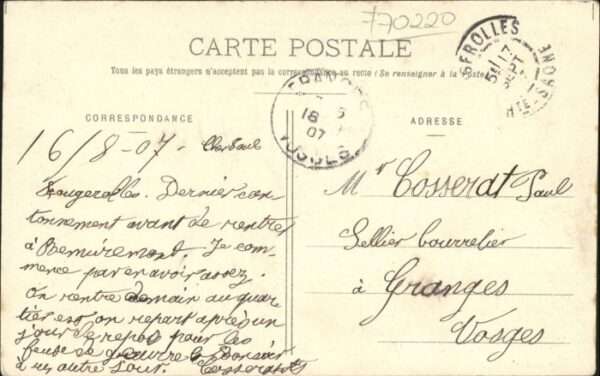 770220
CARTE POSTALE
Tous les pays étrangers n'acceptent pas la correspondance au recto (Se renseigner à la Poste)
FROLLES
5 17
SEPT
HTE SAONE
GRANGES
18
07
VOSGES
CORRESPONDANCE
ADRESSE
16/8-07.
Fougerolles. Dernier can-
tonnement avant de rentrer
à Remiremont. Je com-
mence par en avoir assez.
On rentre demain au quar-
tier on repart après un
jour de repos pour les
de Bonsoir
à un autre jour. Cosserat
Mr Cosserat Paul
Sellier bourrelier
à Granges
Vosges